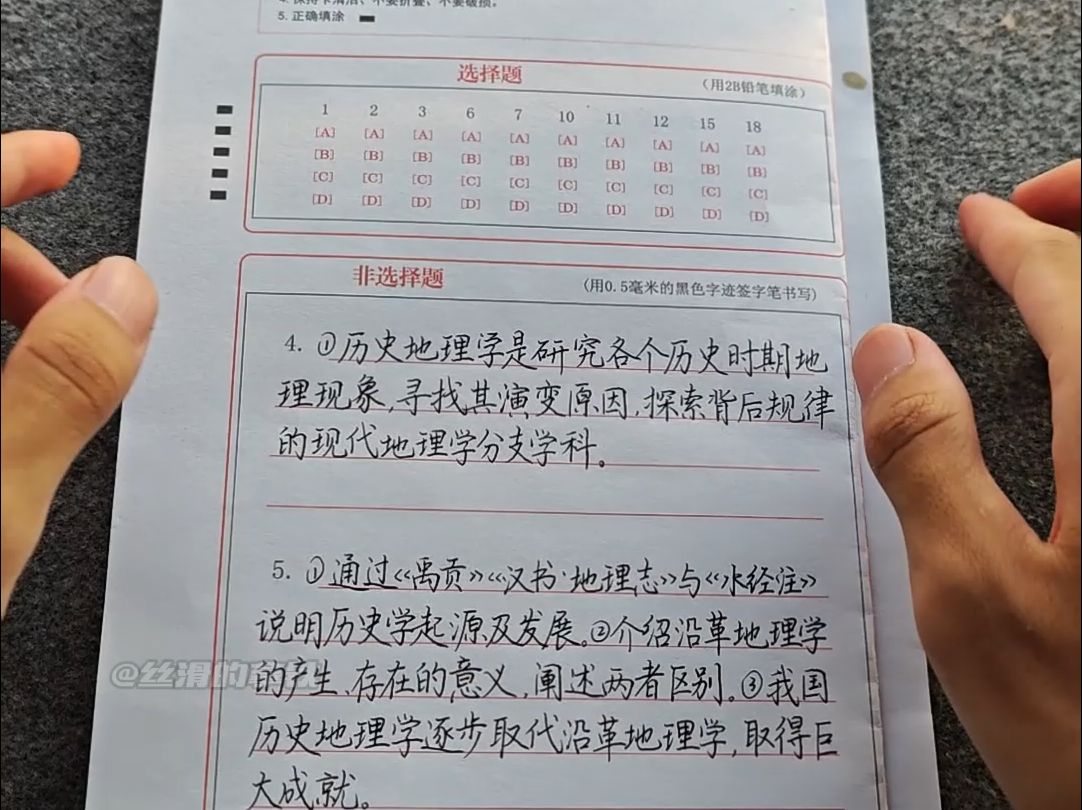 4. 保持卡清洁、不要折叠、不要破损。
5. 正确填涂
选择题
(用2B铅笔填涂)
1 2 3 6 7 10 11 12 15 18
[A] [A] [A] [A] [A] [A] [A] [A] [A] [A]
[B] [B] [B] [B] [B] [B] [B] [B] [B] [B]
[C] [C] [C] [C] [C] [C] [C] [C] [C] [C]
[D] [D] [D] [D] [D] [D] [D] [D] [D] [D]
非选择题
(用0.5毫米的黑色字迹签字笔书写)
4. ①历史地理学是研究各个历史时期地
理现象,寻找其演变原因,探索背后规律
的现代地理学分支学科。
5. ①通过《禹贡》《汉书·地理志》与《水经注》
说明历史学起源及发展。②介绍沿革地理学
的产生、存在的意义,阐述两者区别。③我国
历史地理学逐步取代沿革地理学,取得巨
大成就。
@丝滑的